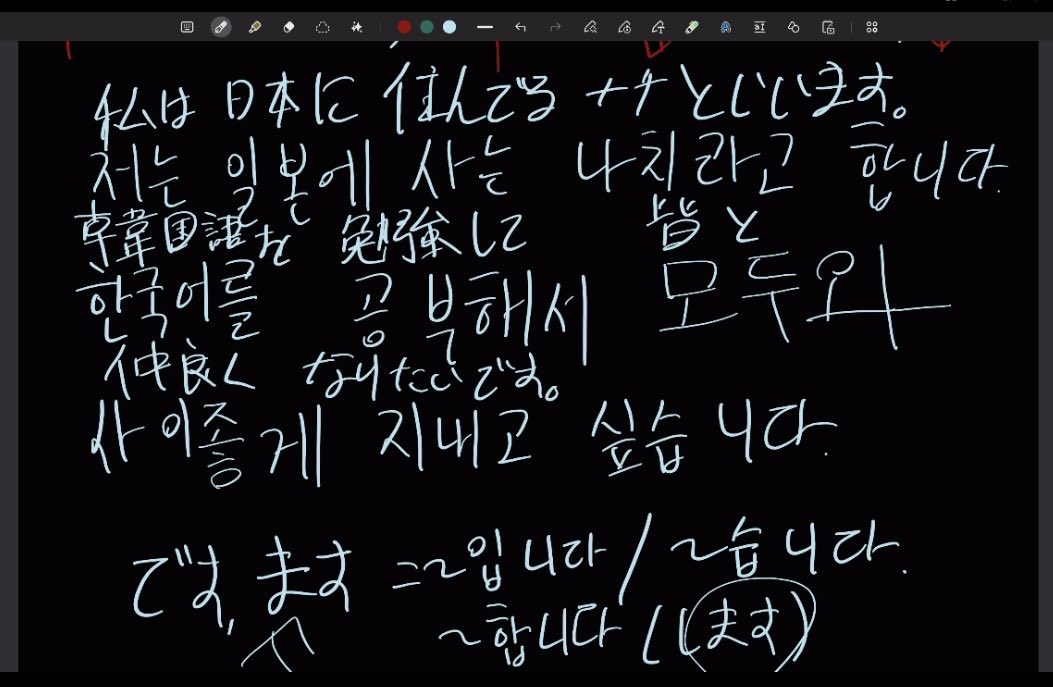 私は日本に住んでるナチといいます。
저는 일본에 사는 나치라고 합니다.
韓国語を勉強して 皆と
한국어를 공부해서 모두와
仲良くなりたいです。
사이좋게 지내고 싶습니다.
です, ます =~입니다 / ~습니다.
~합니다 (します)